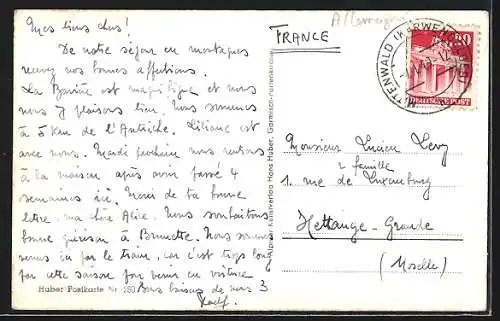 Mes biens chers!
De notre séjour en montagnes
recevez nos bonnes affections.
La Bavière est magnifique et nous
nous y plaisons bien. Nous sommes
à 5 km de l'Autriche. Liliane est
avec nous. Mardi prochain nous rentrons
à la maison après avoir passé 4
semaines ici. Merci de ta bonne
lettre, ma chère Alice. Nous souhaitons
bonne guérison à Brunette. Nous sommes
venus ici par le train, car c'est trop long
par cette saison pour venir en voiture
Bons baisers de nous 3
Huber Postkarte Nr. 280
Kunstverlag Hans Huber, Garmisch-Partenkirchen
FRANCE
Allemagne
MITTENWALD (KARWENDEL)
20
DEUTSCHE POST
Monsieur Lucien Levy
& famille
1. rue de Luxembourg
Hettange-Grande
(Moselle)